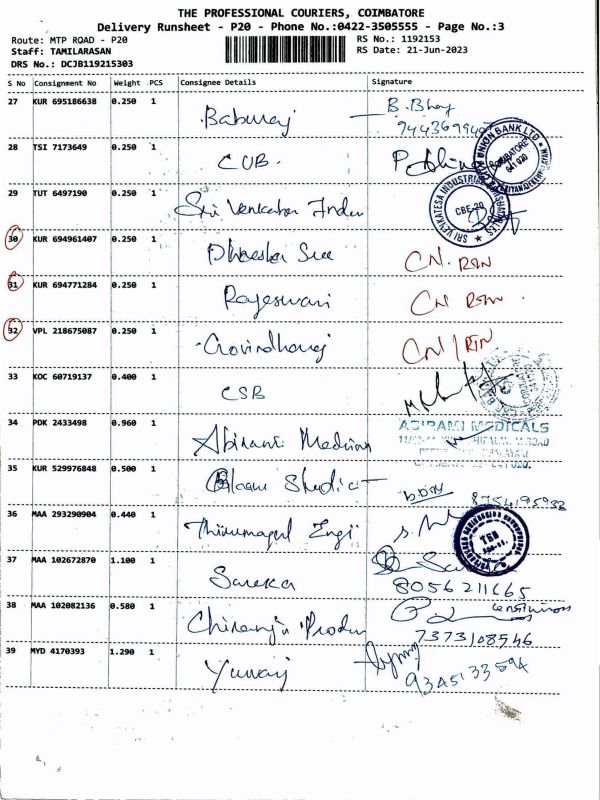 THE PROFESSIONAL COURIERS, COIMBATORE
Delivery Runsheet - P20 - Phone No.:0422-3505555 - Page No.:3
Route: MTP ROAD - P20 RS No.: 1192153
Staff: TAMILARASAN RS Date: 21-Jun-2023
DRS No.: DCJB119215303
S No Consignment No Weight PCS Consignee Details Signature
27 KUR 695186638 0.250 1 Baburaj B. Bhoy
28 TSI 7173649 0.250 1 CUB.
UNION BANK LTD COIMBATORE 641 020
29 TUT 6497190 0.250 1 Sri Venkatea Indu
SRI VENKATESA INDUSTRIAL CBE-20
30 KUR 694961407 0.250 1 Sree CN. RTN
31 KUR 694771284 0.250 1 Rajeswari CN RTN
32 VPL 218675087 0.250 1 Govindharaj CN / RTN
33 KOC 60719137 0.400 1 CSB
34 PDK 2433498 0.960 1 Abirami Medical
ABIRAMI MEDICALS
35 KUR 529976848 0.500 1 Studio 8754195933
36 MAA 293290904 0.440 1 Thirumagal Engi
37 MAA 102672870 1.100 1 Sareka
8056211665
38 MAA 102082136 0.580 1 Chiranji Produ
7373108546
39 MYD 4170393 1.290 1 Yuvaraj
9345133594